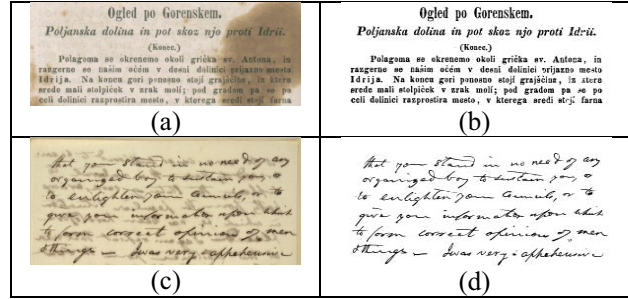 Ogled po Gorenskem.
Poljanska dolina in pot skoz njo proti Idrii.
(Konec.)
Polagoma se okrenemo okoli grička sv. Antona, in
razgerne se našim očém v desni dolinici prijazno mesto
Idrija. Na koncu gori ponosno stojí grajščina, iz ktere
srede mali stolpiček v zrak molí; pod gradom pa se po
celi dolini razprostira mesto, v kterega sredi stojí farna
(a)
Ogled po Gorenskem.
Poljanska dolina in pot skoz njo proti Idrii.
(Konec.)
Polagoma se okrenemo okoli grička sv. Antona, in
razgerne se našim očém v desni dolinici prijazno mesto
Idrija. Na koncu gori ponosno stojí grajščina, iz ktere
srede mali stolpiček v zrak molí; pod gradom pa se po
celi dolini razprostira mesto, v kterega sredi stojí farna
(b)
that you stand in no need of any
organized boy to sustain you, o
to enlighten your Councils, or to
give you information upon whih
to form correct opinions of men
& things — I was very apprehensive
(c)
that you stand in no need of any
organized boy to sustain you, o
to enlighten your Councils, or to
give you information upon whih
to form correct opinions of men
& things — I was very apprehensive
(d)